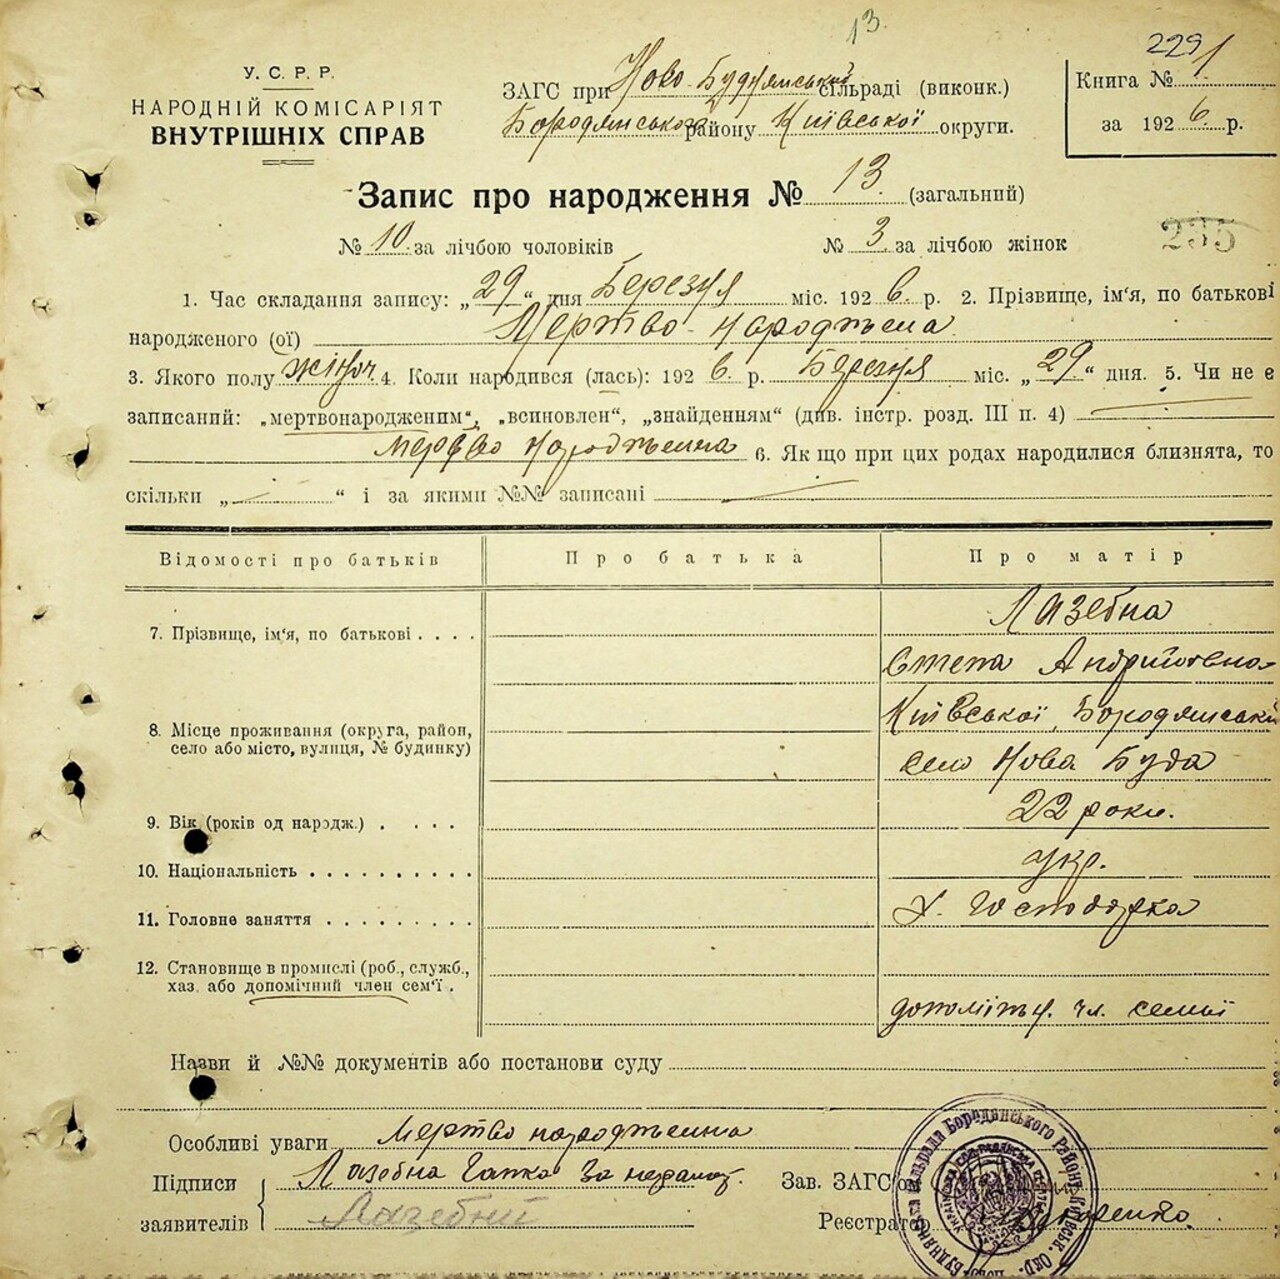 13.
2291
У. С. Р. Р.
НАРОДНІЙ КОМІСАРІЯТ
ВНУТРІШНІХ СПРАВ
ЗАГС при Ново-Будянській сільраді (виконк.)
Бородянського району Київської округи.
Книга № 1
за 1926 р.
Запис про народження № 13. (загальний)
№ 10. за лічбою чоловіків № 3 за лічбою жінок
235
1. Час складання запису: „29“ дня Березня міс. 1926. р. 2. Прізвище, ім‘я, по батькові
народженого (ої) Мертво-народжена
3. Якого полу жіноч. 4. Коли народився (лась): 1926. р. Березня міс. „29.“ дня. 5. Чи не є
записаний: „мертвонародженим“, „всиновлен“, „знайденням“ (див. інстр. розд. III п. 4)
мертво народженна 6. Як що при цих родах народилися близнята, то
скільки „ “ і за якими №№ записані
Відомості про батьків Про батька Про матір
7. Прізвище, ім‘я, по батькові . . . . Лазебна
Степа Андрійовна
8. Місце проживання (округа, район, село або місто, вулиця, № будинку) Київської, Бородянський
село Нова Буда
9. Вік (років од народж.) . . . . 22 роки.
10. Національність . . . . . . . . . . укр.
11. Головне заняття . . . . . . . . . Х. Господарка
12. Становище в промислі (роб., служб.,
хаз. або допоміжний член сем‘ї . допоміжн. чл. семьї
Назви й №№ документів або постанови суду
Особливі уваги Мертво народженна
Підписи Лазебна Гапка за неграмот. Зав. ЗАГС‘ом
заявителів Лазебний Реєстратор